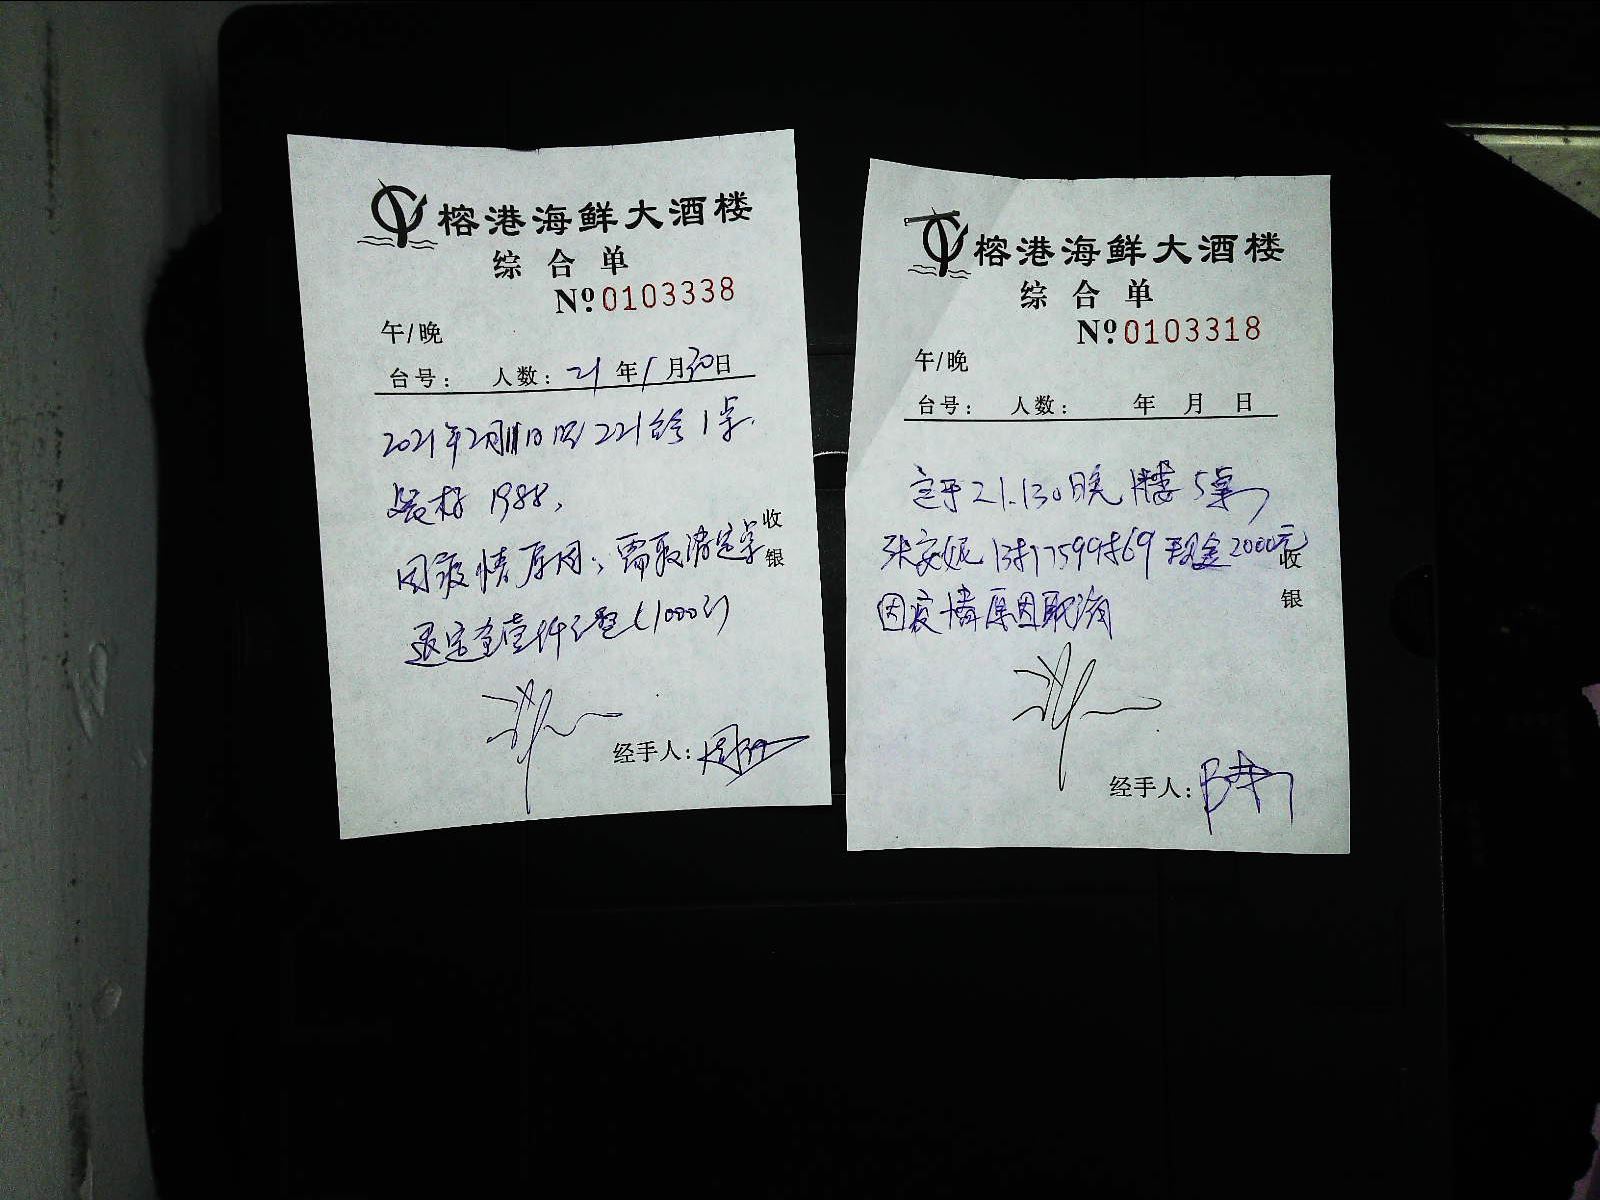 榕港海鲜大酒楼
综合单
Nº 0103338
午/晚
台号： 人数： 21 年 1 月 30 日
2021年2月11日 221 1桌.
1988,
因疫情原因；需取消定桌
退定金壹仟元整（1000元）
收银
经手人：
榕港海鲜大酒楼
综合单
Nº 0103318
午/晚
台号： 人数： 年 月 日
定于21.1.30日晚 1楼 5桌
现金2000元
因疫情原因取消
收银
经手人：